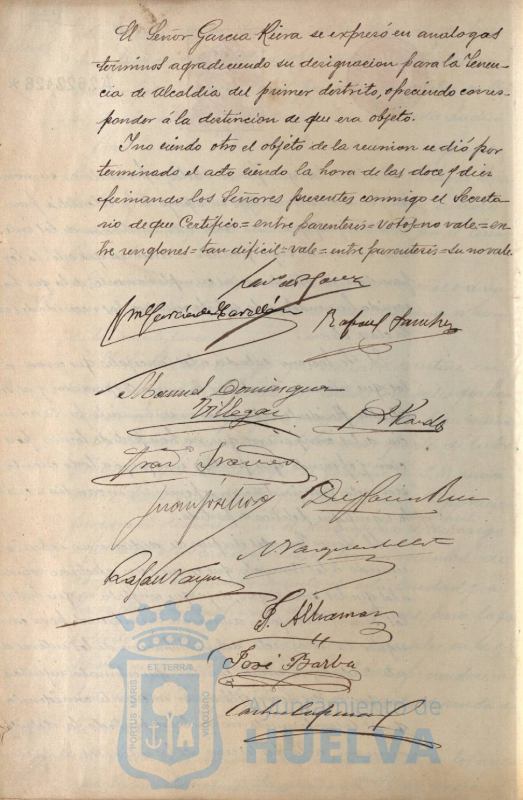 El Señor García Riera se expresó en analogas
terminos agradeciendo su designacion para la Tenen-
cia de Alcaldia del primer distrito, ofreciendo corres-
ponder á la distincion de que era objeto.
Y no siendo otro el objeto de la reunion se dió por
terminado el acto siendo la hora de las doce y diez
firmando los Señores presentes conmigo el Secreta-
rio de que Certifico = entre parentesis = votos = no vale = en-
tre renglones = tan dificil = vale = entre parentesis = su no vale
Rafael Sanchez
Manuel Dominguez
Villegas
Juan José
Rafael Vazquez
José Barba
PORTUS MARIS ET TERRAE CUSTODIA
Ayuntamiento de
HUELVA